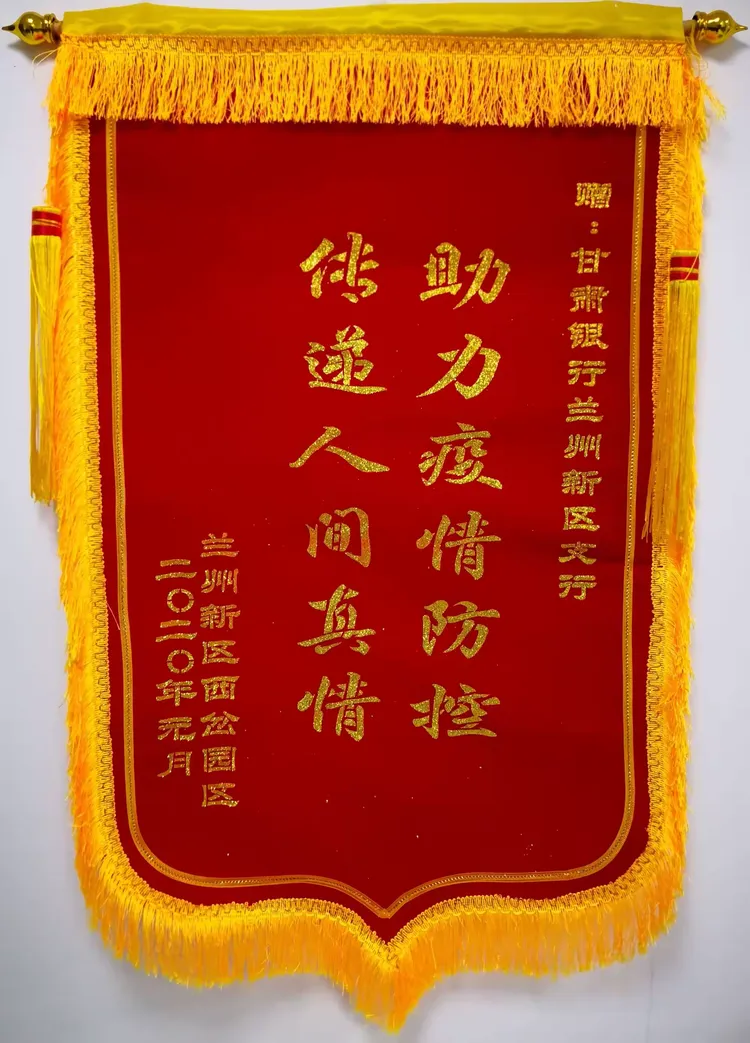 赠：甘肃银行兰州新区支行
助力疫情防控
传递人间真情
兰州新区西岔园区
二〇二〇年元月